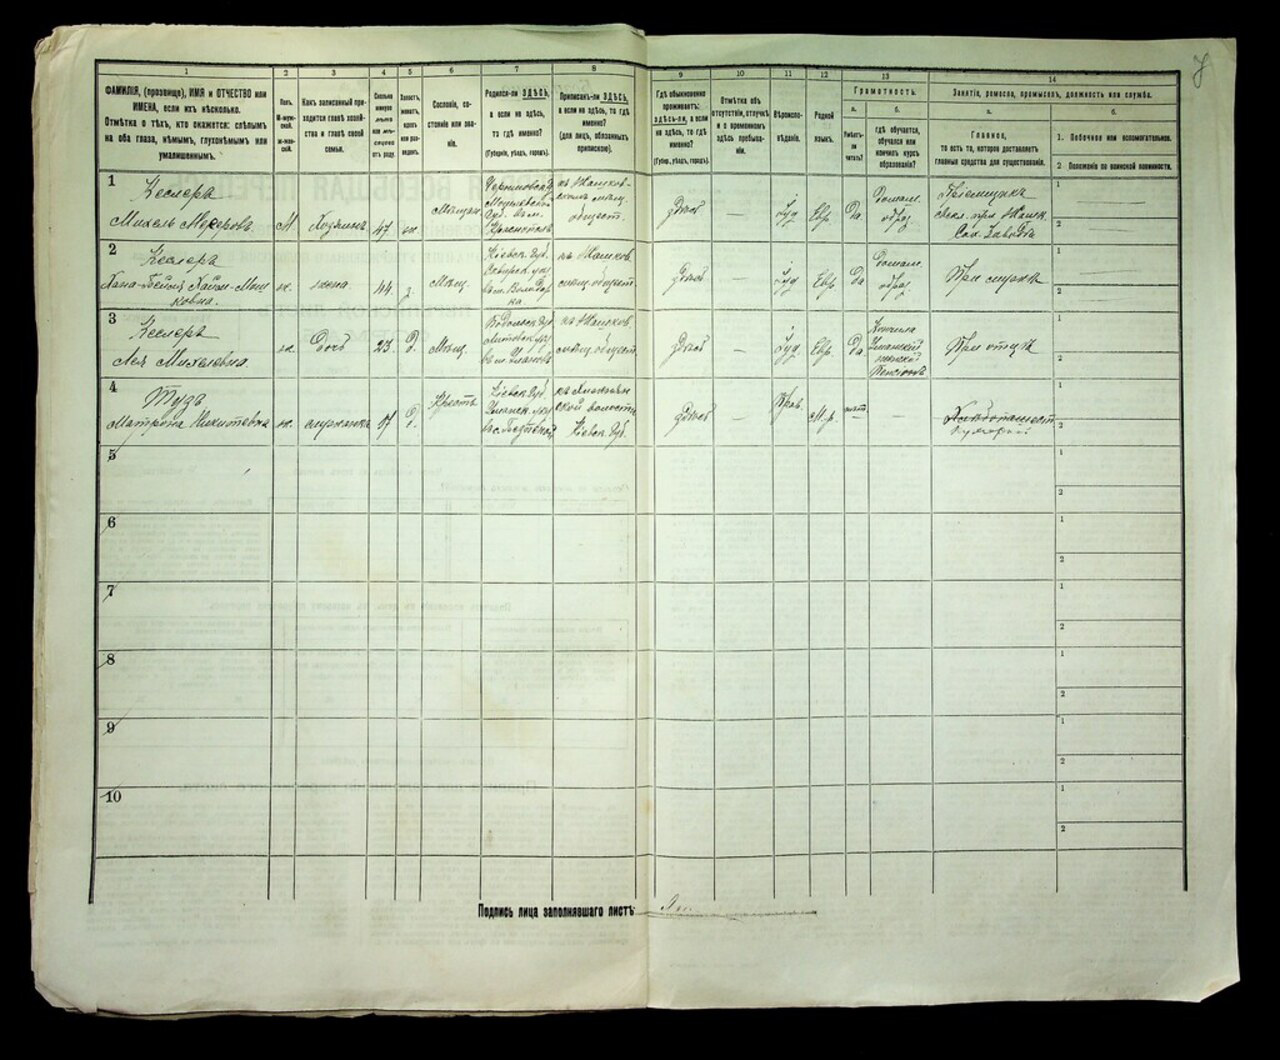 У
1 2 3 4 5 6 7 8 9 10 11 12 13 14
ФАМИЛІЯ, (прозвище), ИМЯ и ОТЧЕСТВО или
ИМЕНА, если ихъ нѣсколько.
Отмѣтка о тѣхъ, кто окажется: слѣпымъ
на оба глаза, нѣмымъ, глухонѣмымъ или
умалишеннымъ.
Полъ.
М-мужской.
ж-женскій.
Какъ записанный приходится
главѣ хозяйства
и главѣ своей
семьи.
Сколько
минуло
лѣтъ
или мѣсяцевъ
отъ роду.
Холостъ,
женатъ,
вдовъ
или разведенъ.
Сословіе, состояніе
или званіе.
Родился-ли ЗДѢСЬ,
а если не здѣсь,
то гдѣ именно?
(Губернія, уѣздъ, городъ).
Приписанъ-ли ЗДѢСЬ,
а если не здѣсь, то гдѣ
именно?
(для лицъ, обязанныхъ
припиской).
Гдѣ обыкновенно
проживаетъ:
здѣсь-ли, а если
не здѣсь, то гдѣ
именно?
(Губер., уѣздъ, городъ).
Отмѣтка объ
отсутствіи, отлучкѣ
и о временномъ
здѣсь пребываніи.
Вѣроисповѣданіе.
Родной
языкъ.
Грамотность.
а. б.
Умѣетъ-ли
читать?
гдѣ обучается,
обучался или
кончилъ курсъ
образованія?
Занятіе, ремесло, промыселъ, должность или служба.
а. б.
Главное,
то есть то, которое доставляетъ
главныя средства для существованія.
1. Побочное или вспомогательное.
2 Положеніе по воинской повинности.
1
Кеслеръ
Михель Мееровъ. М. Хозяинъ 47 ж. Мѣщан.
Могилевской
къ Жашков.
мѣщ.
общест.
здѣсь — Іуд Евр. Да
Домаш.
образ.
Пріемщикъ
при Жашк.
Сах. Заводѣ
1 —
2 —
2
Кеслеръ
Хана-Бейла Хаим-Мошковна.
ж. жена 44 з. Мѣщ.
Кіевск. Губ.
Сквирск. уѣз
въ м. Володарка
къ Жашков.
мѣщ. общест.
здѣсь — Іуд Евр Да
Домаш.
образ.
При мужѣ
1 —
2 —
3
Кеслеръ
Лея Михелевна. ж. Дочь 23. д. Мѣщ.
Подольск Губ
Литовск. уѣз
въ м. Улановъ
къ Жашков.
мѣщ. общест
здѣсь — Іуд. Евр. Да
Кончила
Уманскій
женскій
Пенсіонъ
При отцѣ
1
2
4
Тузъ
Матрона Никитевна ж. служанка 17 д. Крест.
Кіевск. Губ.
Уманск. уѣз
къ
ской волости
Кіевск. Губ.
здѣсь — Прав. М.р. нѣтъ —
1
2
5
1
2
6
1
2
7
1
2
8
1
2
9
1
2
10
1
2
Подпись лица заполнявшаго листъ